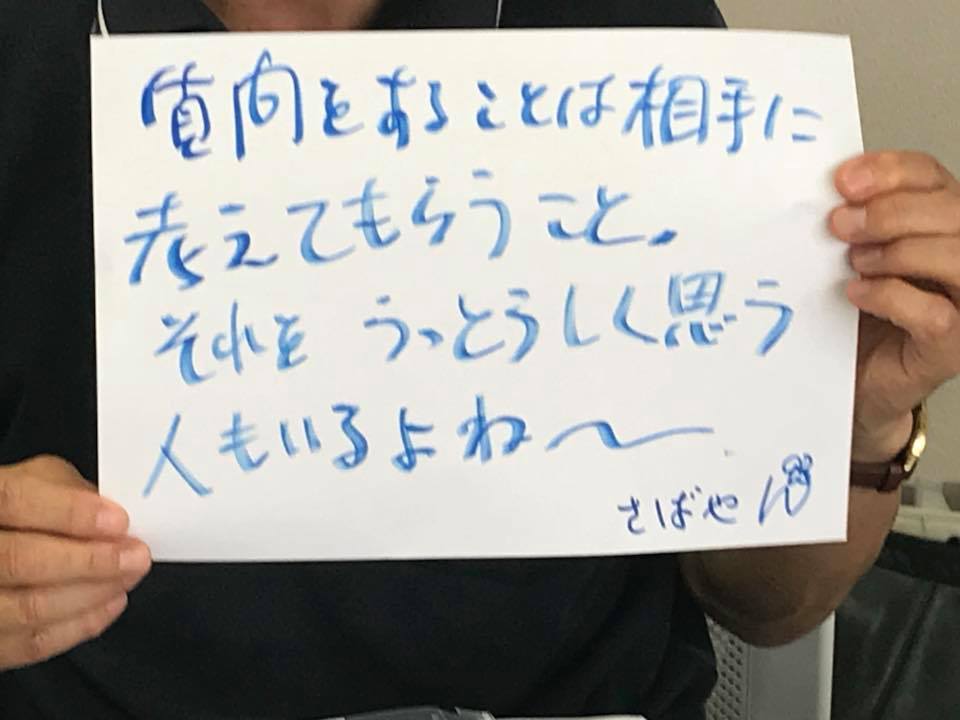 質問をすることは相手に
考えてもらうこと。
それを うっとうしく思う
人もいるよね〜
さばや